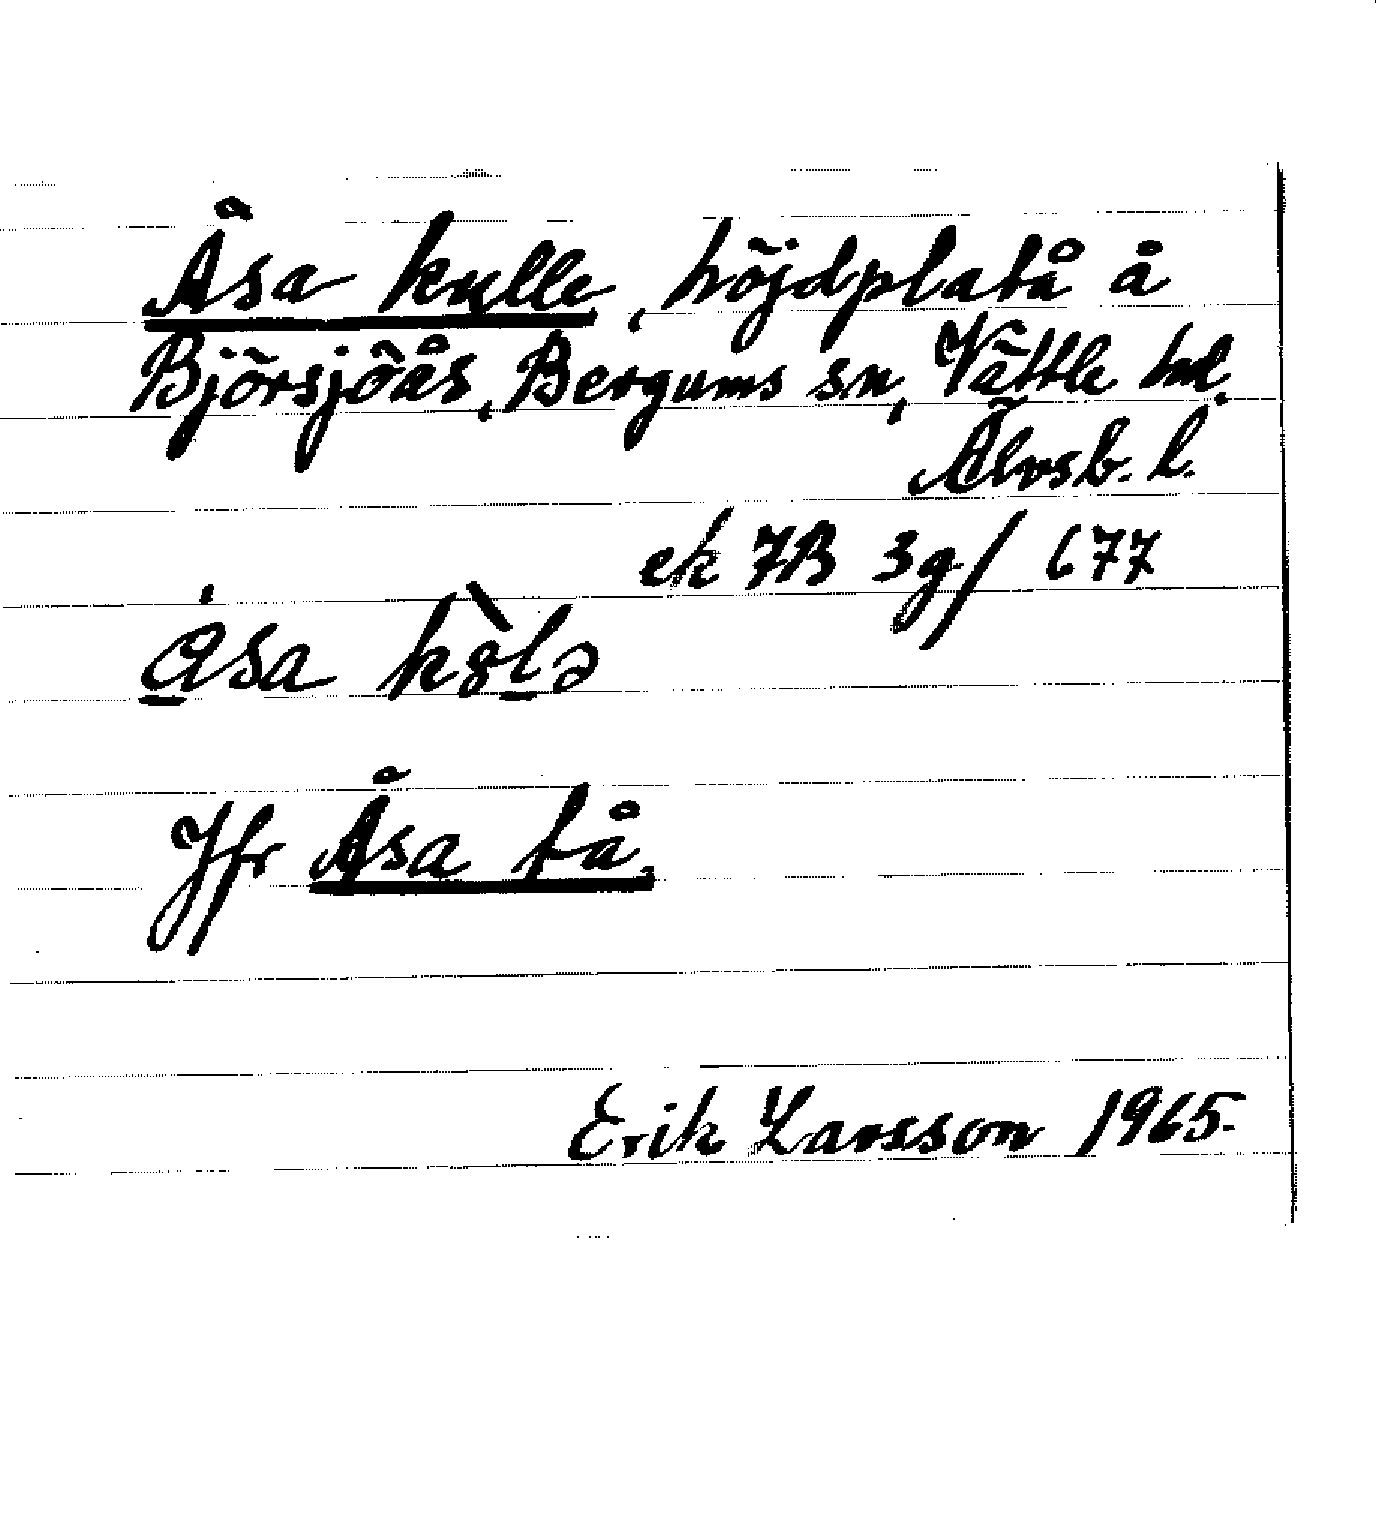 Åsa kulle, höjdplatå å
Björsjöås, Bergums sn, Vättle hd,
Älvsb. l.
ek 7B 3g/677
Jfr Åsa tå.
Erik Larsson 1965.